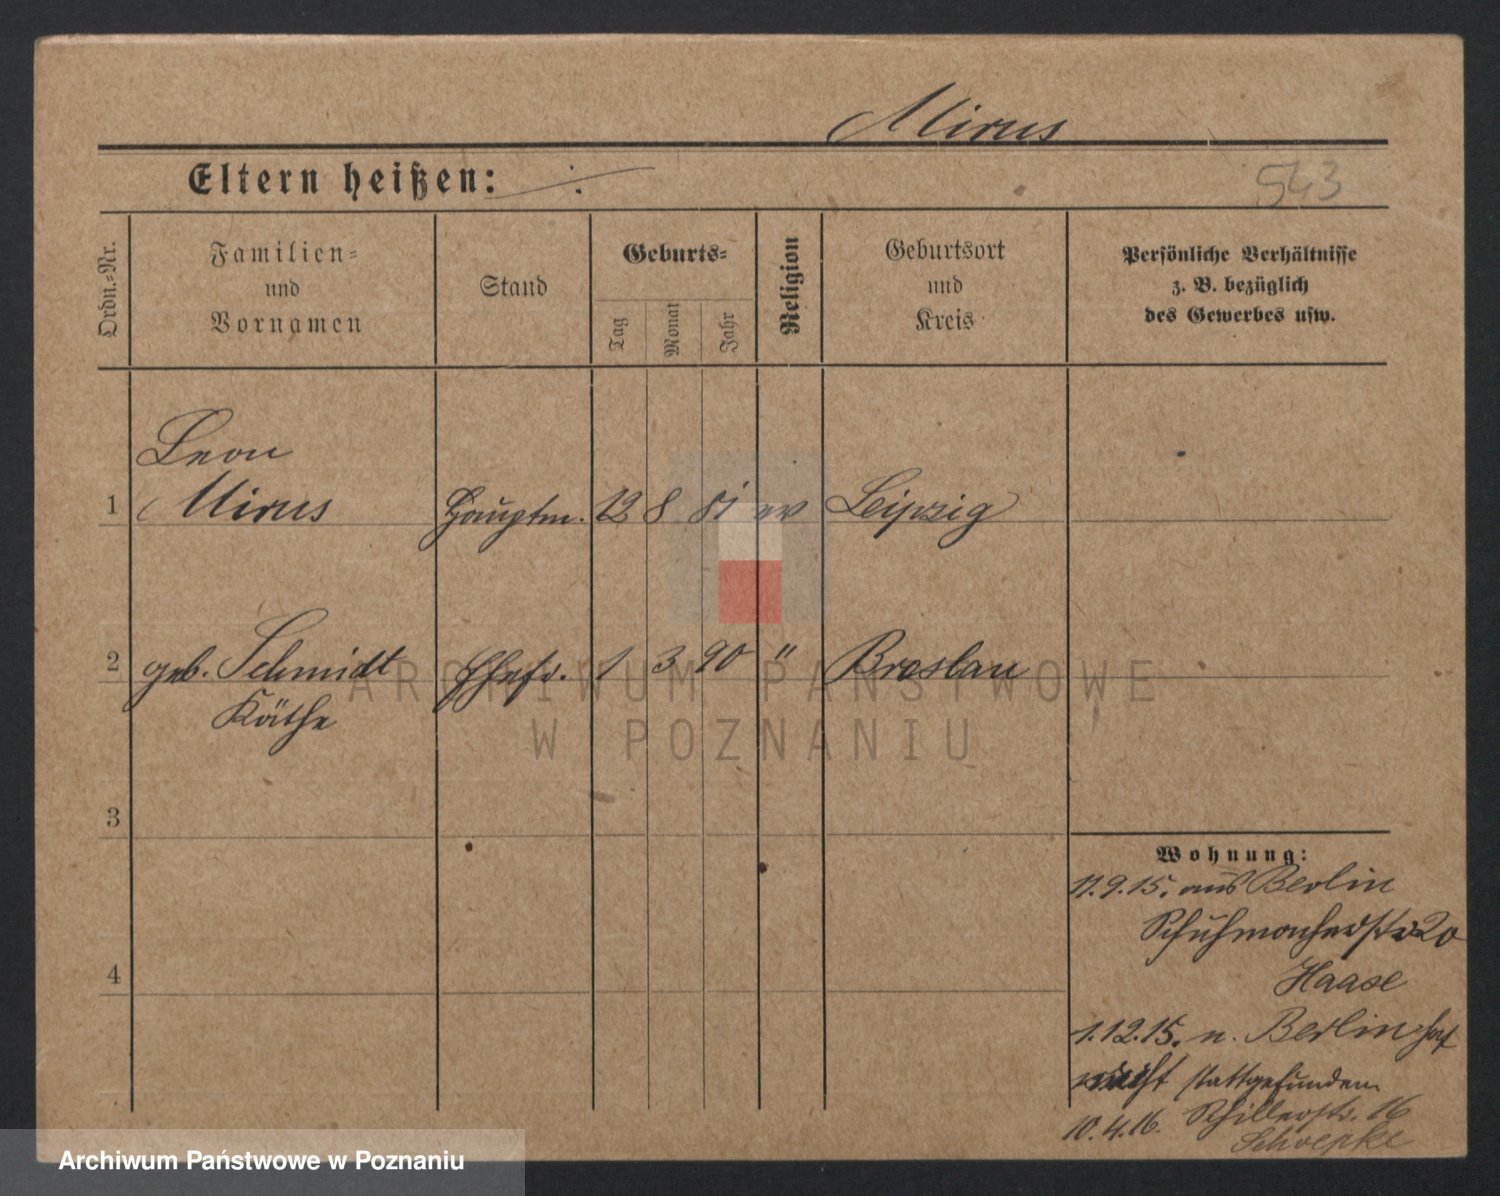 Mirus
Eltern heißen: ·/.
543
Ordn.-Nr.
Familien-
und
Vornamen
Stand
Geburts-
Tag
Monat
Jahr
Religion
Geburtsort
und
Kreis
Persönliche Verhältnisse
z. B. bezüglich
des Gewerbes usw.
Leon
1 Mirus Hauptm. 12 8 81 ev Leipzig
2 geb. Schmidt Ehefr. 1 3 90 " Breslau
Käthe
3
4
Wohnung:
11.9.15. aus Berlin
Schuhmacherstr 20
Haase
1.12.15. n. Berlin hat
nicht stattgefunden
10.4.16. Schillerstr. 16
Schoepke
ARCHIWUM PAŃSTWOWE
W POZNANIU
Archiwum Państwowe w Poznaniu